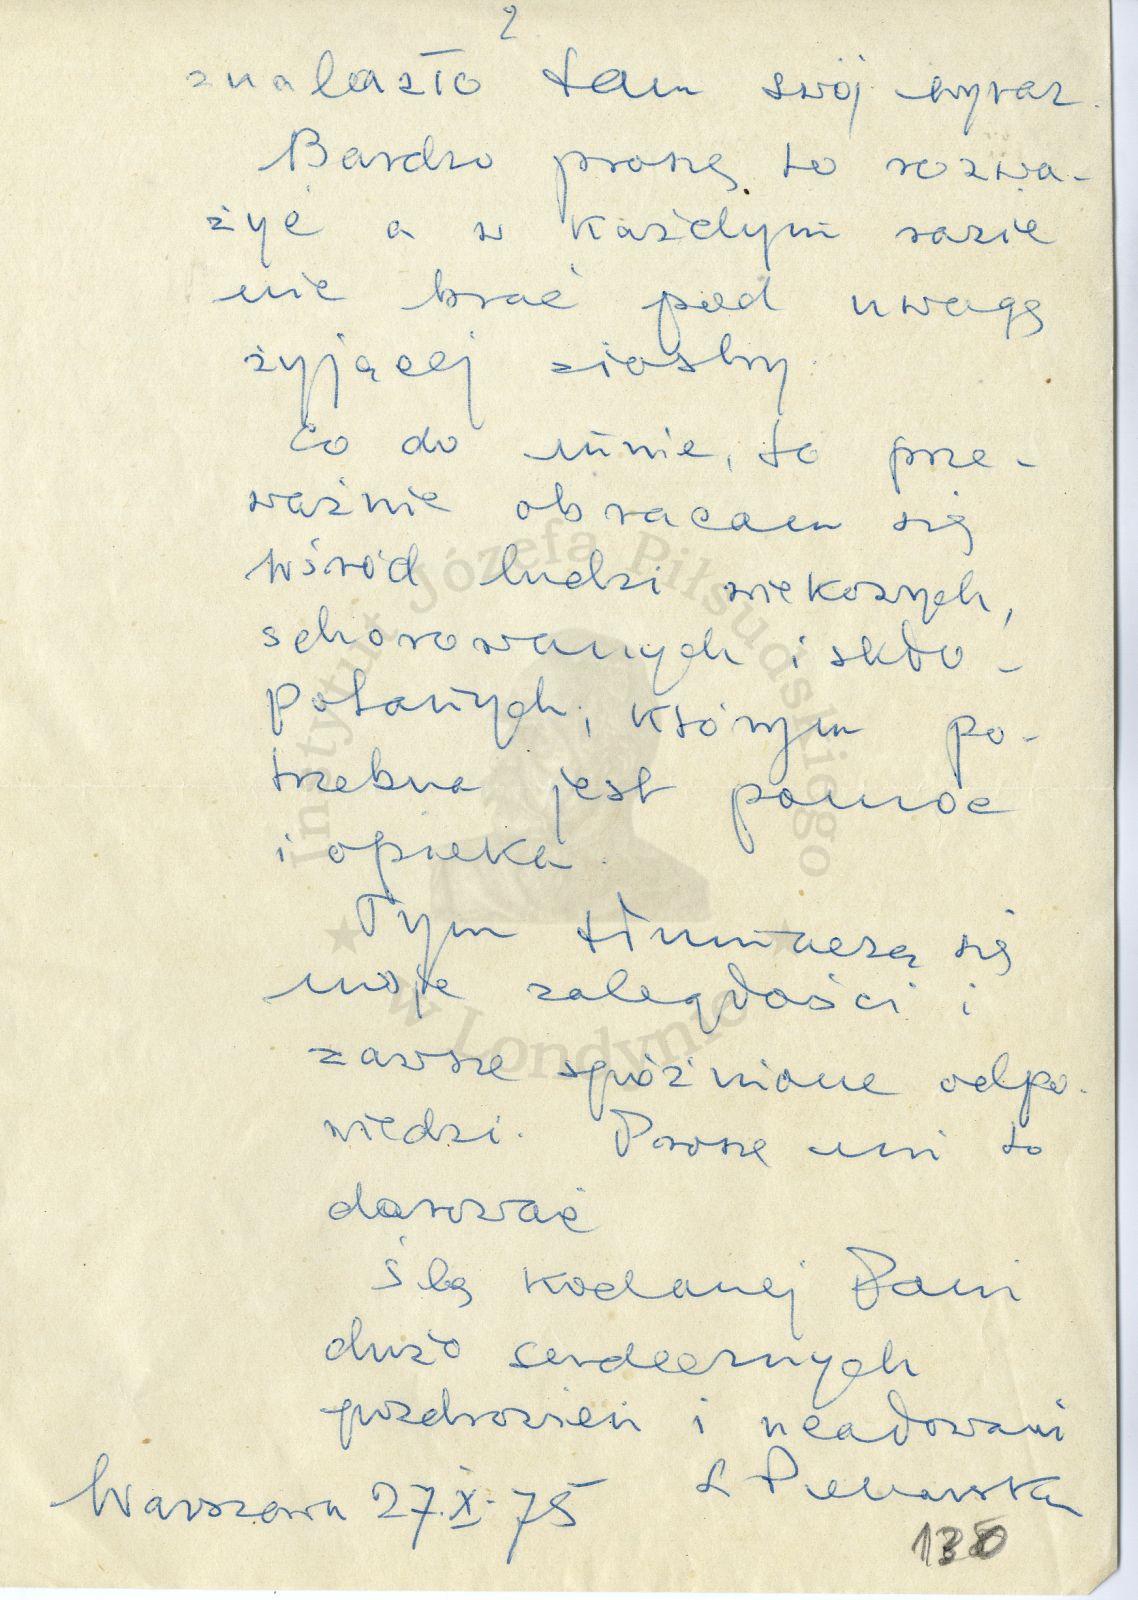 2
znalazło tam swój wyraz.
Bardzo proszę to rozwa-
żyć a w każdym razie
nie brać pod uwagę
żyjącej siostry.
Co do mnie, to prze-
ważnie obracam się
wśród ludzi wiekowych,
schorowanych i skło-
potanych, którym po-
trzebna jest pomoc
i opieka.
Tym tłumaczą się
moje zaległości i
zawsze spóźnione odpo-
wiedzi. Proszę mi to
darować
Ślę kochanej Pani
dużo serdecznych
pozdrowień i ucałowań
Warszawa 27.X.75
L
Instytut Józefa Piłsudskiego
w Londynie